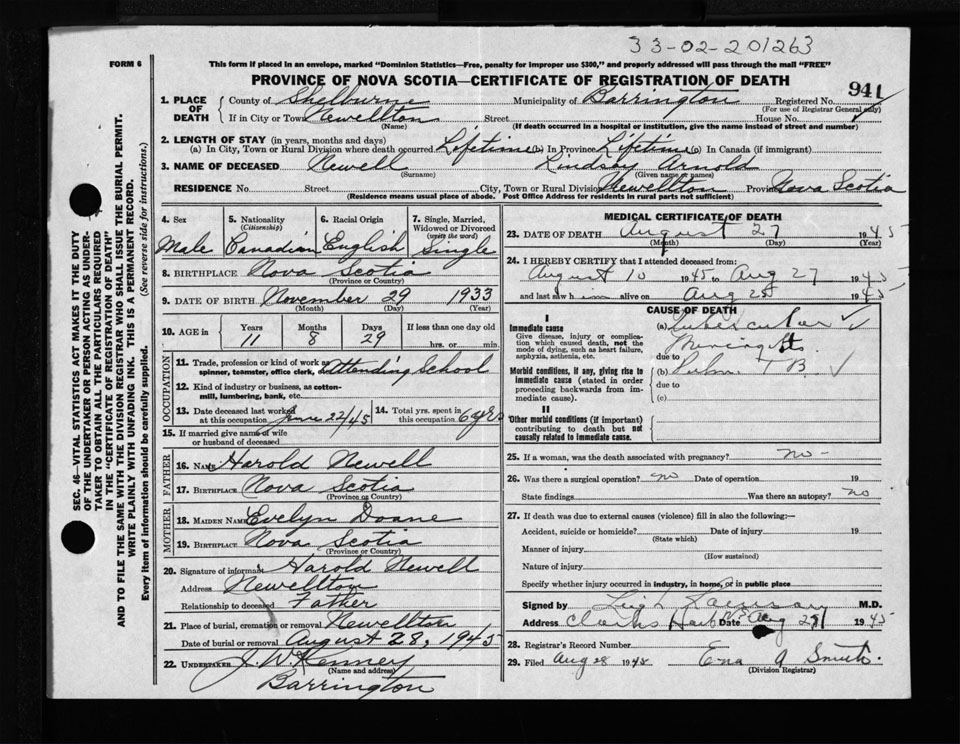 33-02-201263
FORM 6
This form if placed in an envelope, marked "Dominion Statistics—Free, penalty for improper use $300," and properly addressed will pass through the mail "FREE"
PROVINCE OF NOVA SCOTIA—CERTIFICATE OF REGISTRATION OF DEATH
941
1. PLACE OF DEATH
County of Shelburne Municipality of Barrington Registered No.
(For use of Registrar General only)
If in City or Town Newellton Street House No.
(Name) (If death occurred in a hospital or institution, give the name instead of street and number)
2. LENGTH OF STAY (in years, months and days)
(a) In City, Town or Rural Division where death occurred Lifetime (b) In Province Lifetime (c) In Canada (if immigrant)
3. NAME OF DECEASED Newell Lindsay Arnold
(Surname) (Given name or names)
RESIDENCE No. Street City, Town or Rural Division Newellton Province Nova Scotia
(Residence means usual place of abode. Post Office Address for residents in rural parts not sufficient)
4. Sex
Male
5. Nationality
(Citizenship)
Canadian
6. Racial Origin
English
7. Single, Married, Widowed or Divorced
(write the word)
Single
8. BIRTHPLACE Nova Scotia
(Province or Country)
9. DATE OF BIRTH November 29 1933
(Month) (Day) (Year)
10. AGE in Years Months Days If less than one day old
11 8 29 hrs. or min.
OCCUPATION
11. Trade, profession or kind of work as
spinner, teamster, office clerk, etc. Attending School
12. Kind of industry or business, as cotton-
mill, lumbering, bank, etc.
13. Date deceased last worked at this occupation June 22/45
14. Total yrs. spent in this occupation 6 yrs
15. If married give name of wife
or husband of deceased
FATHER
16. NAME Harold Newell
17. BIRTHPLACE Nova Scotia
(Province or Country)
MOTHER
18. MAIDEN NAME Evelyn Doane
19. BIRTHPLACE Nova Scotia
(Province or Country)
20. Signature of informant Harold Newell
Address Newellton
Relationship to deceased Father
21. Place of burial, cremation or removal Newellton
Date of burial or removal August 28, 1945
22. UNDERTAKER J. W. Kenney
(Name and address)
Barrington
MEDICAL CERTIFICATE OF DEATH
23. DATE OF DEATH August 27 1945
(Month) (Day) (Year)
24. I HEREBY CERTIFY that I attended deceased from:
August 10 1945 to Aug 27 1945
and last saw him alive on Aug 25 1945
CAUSE OF DEATH
I
Immediate cause
Give disease, injury or complication which caused death, not the mode of dying, such as heart failure, asphyxia, asthenia, etc.
(a) Tubercular
Meningitis
due to
Morbid conditions, if any, giving rise to immediate cause (stated in order proceeding backwards from immediate cause).
(b) T B.
due to
(c)
II
Other morbid conditions (if important) contributing to death but not causally related to immediate cause.
25. If a woman, was the death associated with pregnancy? no-
26. Was there a surgical operation? no Date of operation 19
State findings Was there an autopsy? no
27. If death was due to external causes (violence) fill in also the following:—
Accident, suicide or homicide? Date of injury 19
(State which)
Manner of injury
(How sustained)
Nature of injury
Specify whether injury occurred in industry, in home, or in public place
Signed by M.D.
Address Clarks Harb Date Aug 1945
28. Registrar's Record Number
29. Filed Aug 28 1945 Ena A Smith.
(Division Registrar)
SEC. 46—VITAL STATISTICS ACT MAKES IT THE DUTY
OF THE UNDERTAKER OR PERSON ACTING AS UNDER-
TAKER TO OBTAIN ALL THE PARTICULARS REQUIRED
IN THE "CERTIFICATE OF REGISTRATION OF DEATH"
AND TO FILE THE SAME WITH THE DIVISION REGISTRAR WHO SHALL ISSUE THE BURIAL PERMIT.
WRITE PLAINLY WITH UNFADING INK. THIS IS A PERMANENT RECORD.
Every item of information should be carefully supplied. (See reverse side for instructions.)